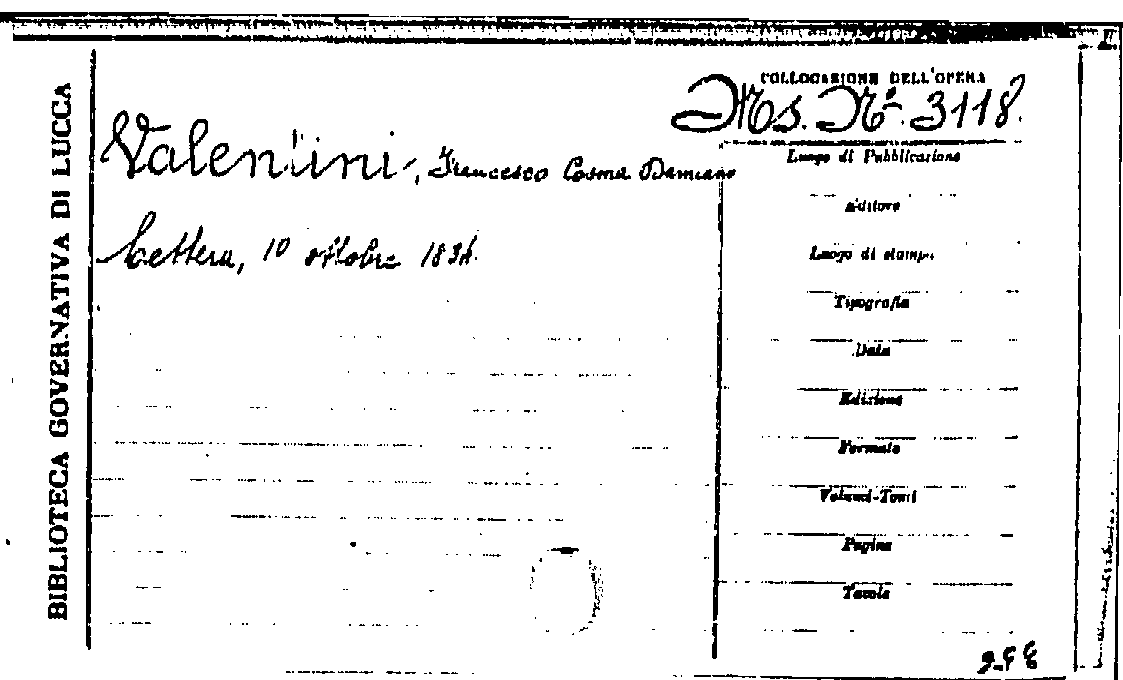 BIBLIOTECA GOVERNATIVA DI LUCCA
COLLOCAZIONE DELL'OPERA
Ms. N.º 3118.
Valentini, Francesco Cosma Damiano
Lettera, 10 ottobre
Luogo di Pubblicazione
Editore
Luogo di stampa
Tipografia
Data
Edizione
Formato
Volumi-Tomi
Pagine
Tavole